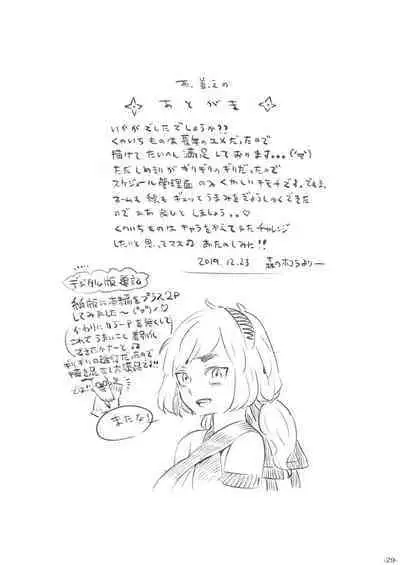 あとがき
いかがでしたでしょうか??
くのいちものは長年のユメだったので
描けてたいへん満足しております。。。
ただしめきりがギリギリのギリだったので
スケジュール管理面のみくやしいキモチです。でも、
ネームも絵もギュッとうまみをぎょうしゅくできた
のでこれ良しとしましょう。。♡
くのいちものはキャラをかえてまたチャレンジ
したいと思ってマスの おたのしみに!!
2019.12.23 森のホコラより―
デジタル版 追記
紙版に本編をプラス2P
してみました〜
かわりに
これでうまいこと着地
できたかナーと
またな!
-29-